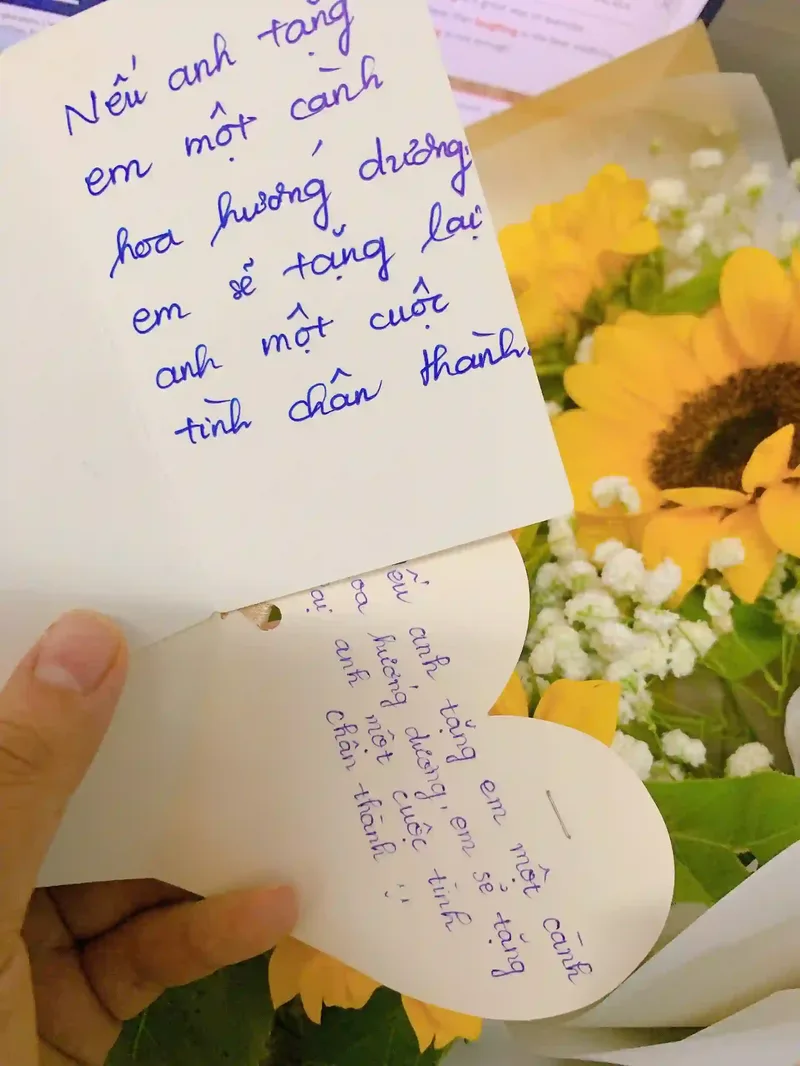 Nếu anh tặng
em một cành
hoa hướng dương,
em sẽ tặng lại
anh một cuộc
tình chân thành.
ếu anh tặng em một cành
oa hướng dương, em sẽ tặng
ại anh một cuộc tình
chân thành :)